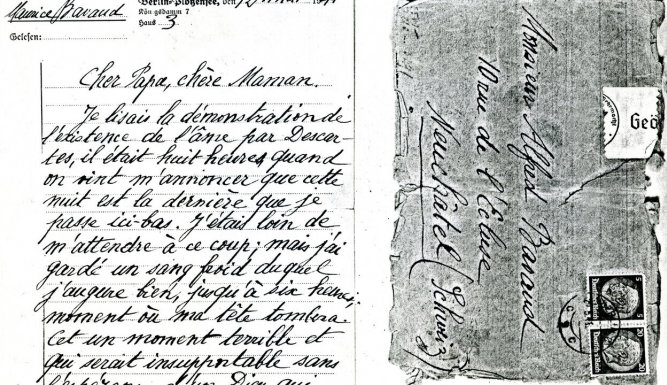 Maurice Bavaud
Berlin-Plötzensee, den 12 mai 1941
Königsdamm 7
Haus 3
Gelesen:
Cher Papa, chère Maman.
Je lisais la démonstration de
l'existence de l'âme par Descar-
tes, il était huit heures quand
on vint m'annoncer que cette
nuit est la dernière que je
passe ici-bas. J'étais loin de
m'attendre à ce coup; mais j'ai
gardé un sang froid duquel
j'augure bien, jusqu'à six heures,
moment où ma tête tombera.
Cet un moment terrible et
qui serait insupportable sans
d'un Dieu qui
Monsieur Alfred Bavaud
10 rue de l'Ecluse
Neuchâtel
(Schweiz)
Geö
5
Deutsches Reich
20
Deutsches Reich